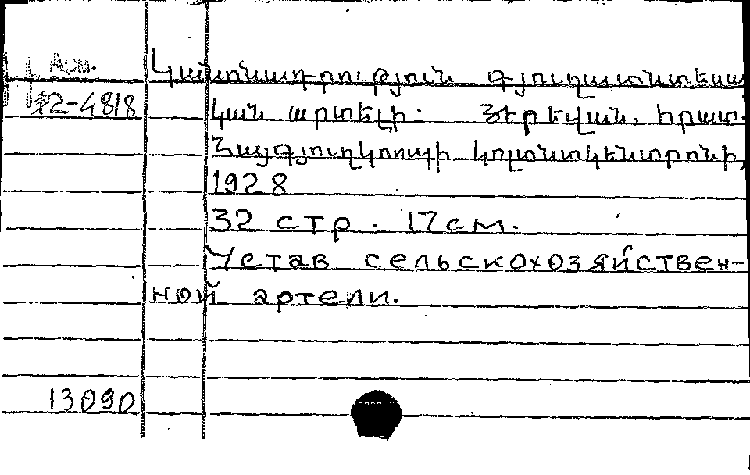 Арм.
Կանոնադրություն գյուղատնտեսա
2-4818
կան արտելի. Յերեվան, Հրատ.
Հայգյուղկոոպի կոլտնտկենտրոնի,
1928
32 стр. 17см.
Устав сельскохозяйствен-
ной артели.
13090